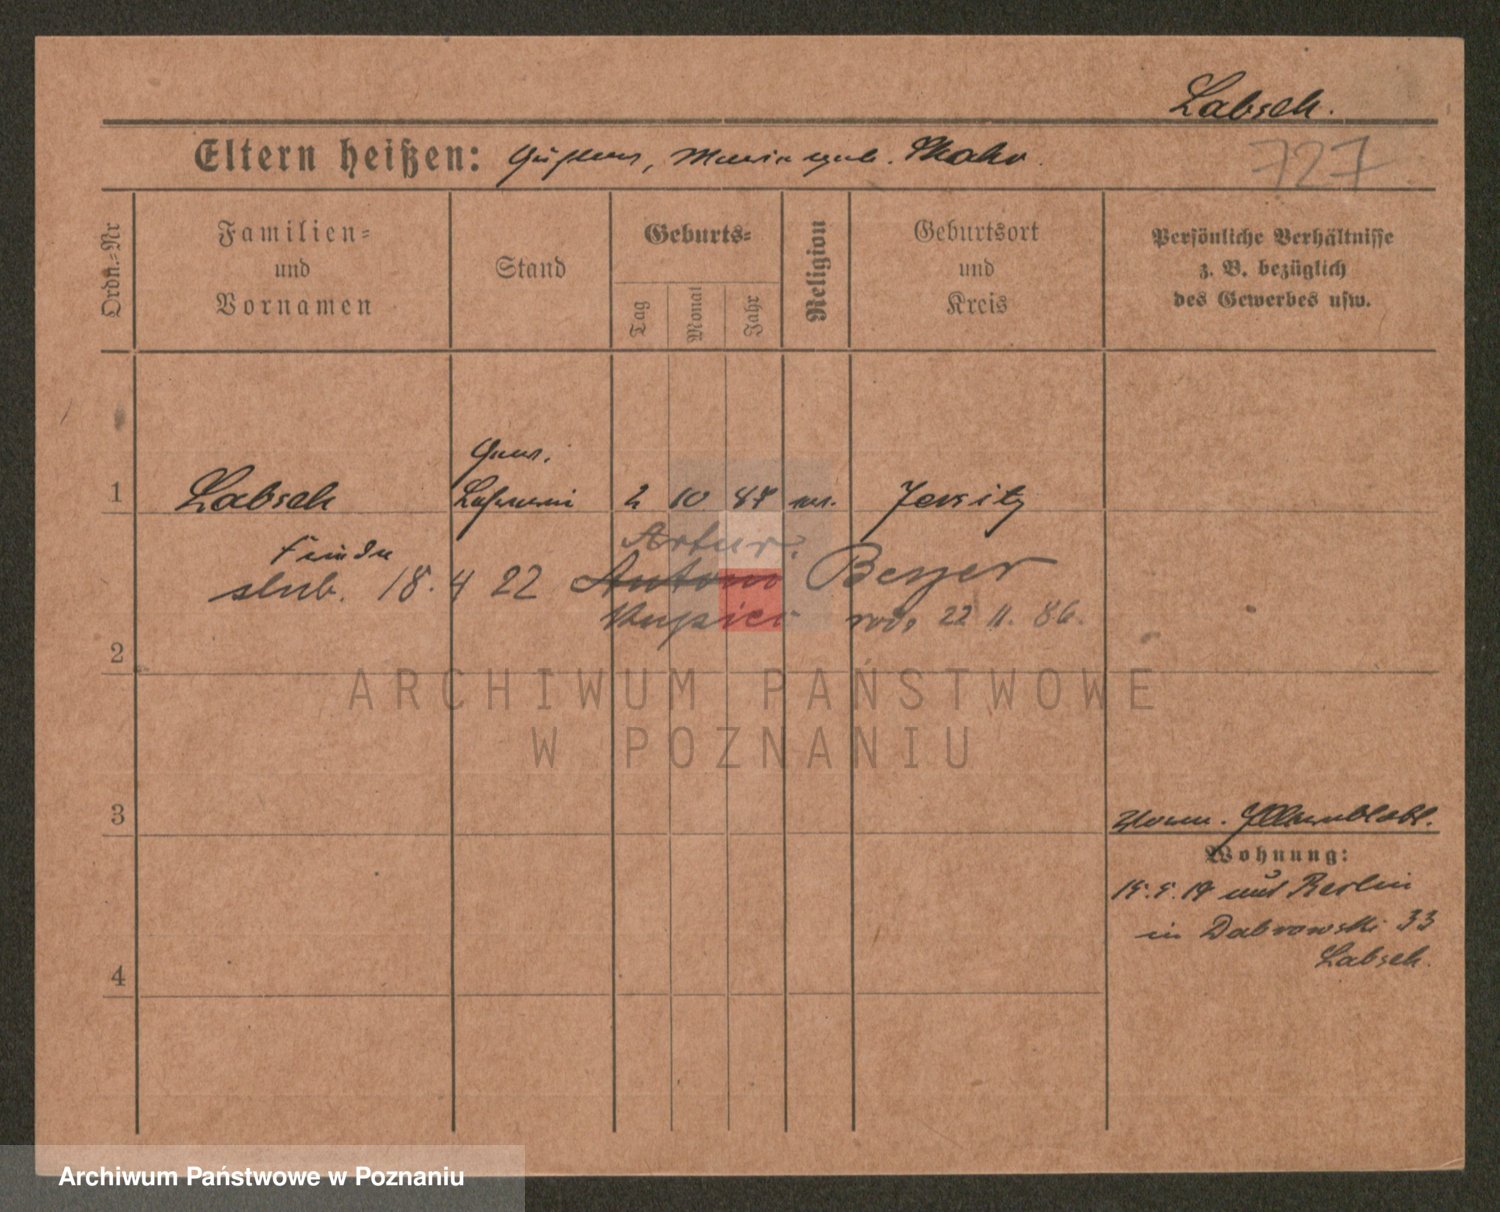 Labsch.
Eltern heißen: Maria geb.
727
Ordn.-Nr
Familien-
und
Vornamen
Stand
Geburts-
Tag
Monat
Jahr
Religion
Geburtsort
und
Kreis
Persönliche Verhältnisse
z. B. bezüglich
des Gewerbes usw.
1
Labsch 2 10 87 Jersitz
Artur
ślub. 18. 4 22 Antoni Beyer
Kupiec 22 11. 86.
2
ARCHIWUM PAŃSTWOWE
W POZNANIU
3
Wohnung:
aus Berlin
in Dabrowski 33
Labsch.
4
Archiwum Państwowe w Poznaniu